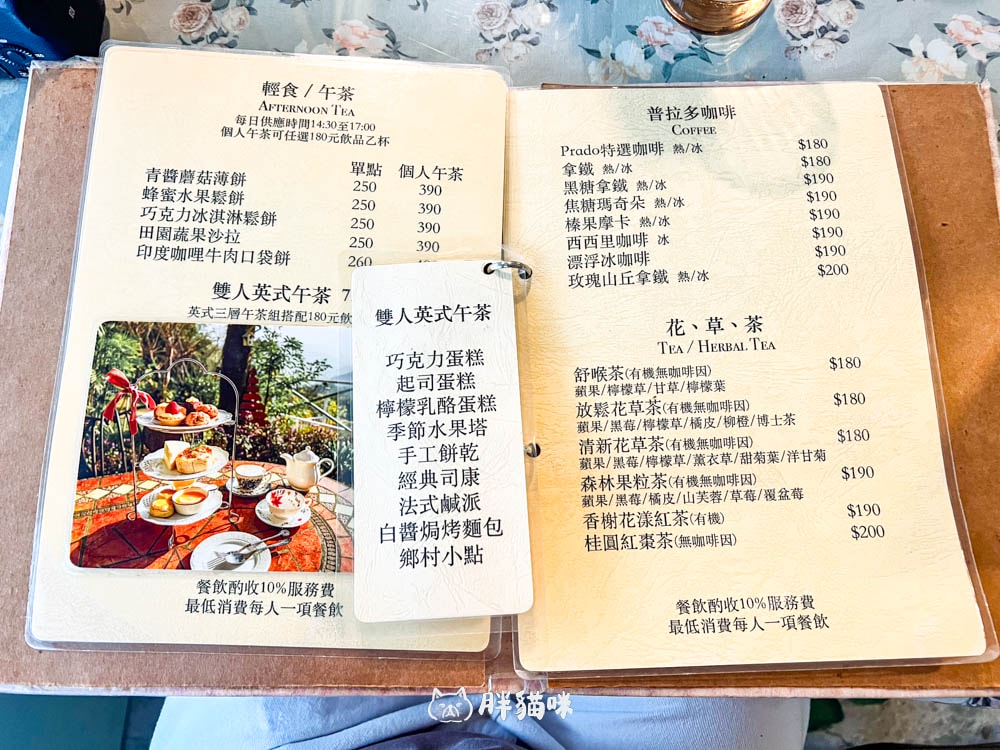 輕食 / 午茶
AFTERNOON TEA
每日供應時間14:30至17:00
個人午茶可任選180元飲品乙杯
單點 個人午茶
青醬蘑菇薄餅 250 390
蜂蜜水果鬆餅 250 390
巧克力冰淇淋鬆餅 250 390
田園蔬果沙拉 250 390
印度咖哩牛肉口袋餅 260
雙人英式午茶 7
英式三層午茶組搭配180元飲
餐飲酌收10%服務費
最低消費每人一項餐飲
雙人英式午茶
巧克力蛋糕
起司蛋糕
檸檬乳酪蛋糕
季節水果塔
手工餅乾
經典司康
法式鹹派
白醬焗烤麵包
鄉村小點
普拉多咖啡
COFFEE
Prado特選咖啡 熱/冰 $180
拿鐵 熱/冰 $180
黑糖拿鐵 熱/冰 $190
焦糖瑪奇朵 熱/冰 $190
榛果摩卡 熱/冰 $190
西西里咖啡 冰 $190
漂浮冰咖啡 $190
玫瑰山丘拿鐵 熱/冰 $200
花、草、茶
TEA / HERBAL TEA
舒喉茶(有機無咖啡因) $180
蘋果/檸檬草/甘草/檸檬葉
放鬆花草茶(有機無咖啡因) $180
蘋果/黑莓/檸檬草/橘皮/柳橙/博士茶
清新花草茶(有機無咖啡因) $180
蘋果/黑莓/檸檬草/薰衣草/甜菊葉/洋甘菊
森林果粒茶(有機無咖啡因) $190
蘋果/黑莓/橘皮/山芙蓉/草莓/覆盆莓
香榭花漾紅茶(有機) $190
桂圓紅棗茶(無咖啡因) $200
餐飲酌收10%服務費
最低消費每人一項餐飲
胖貓咪